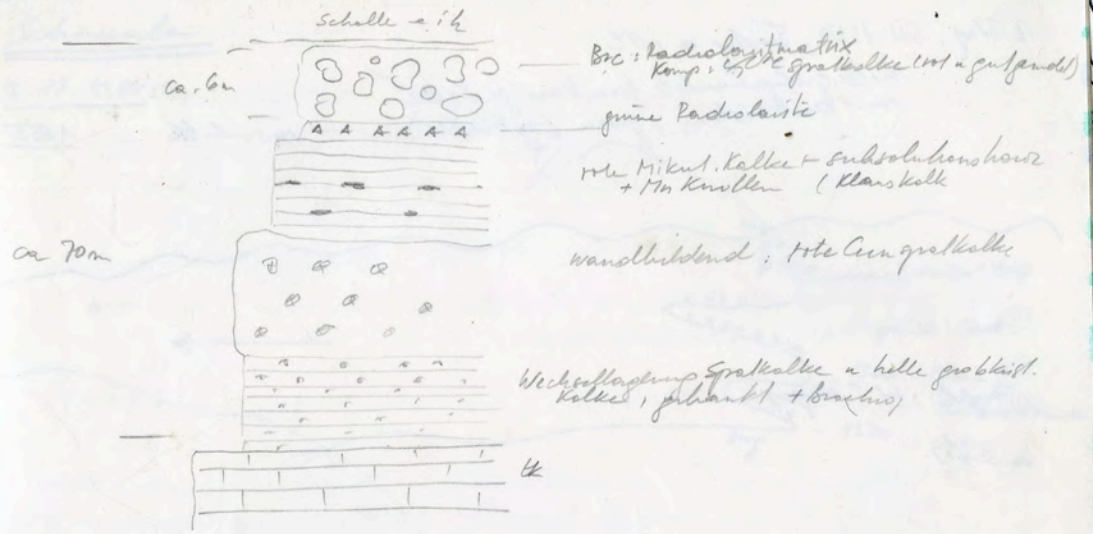 Scholle
Brc: Radiolaritmatrix
ca. 6m
Komp: Spatkalke (rot u
grüne Radiolarite
rote Mikrit. Kalke + Subsolutionshoriz
+ Mn Knollen (Klauskalk
ca 70m
wandbildend: rote Crinspatkalke
Wechsellagerung Spatkalke u helle grobkrist.
Kalke, gebankt + Brachiop